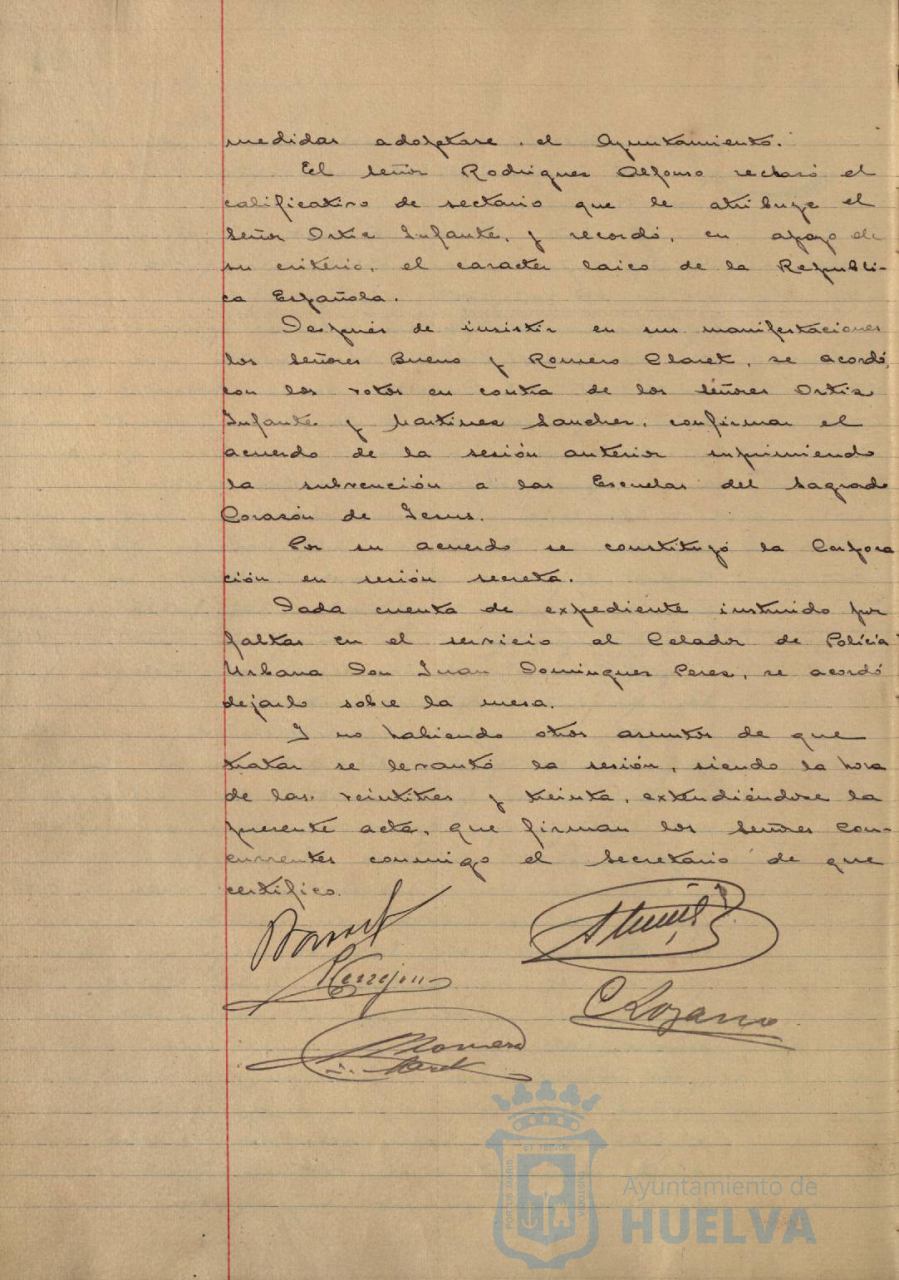 medidas adoptase el Ayuntamiento.
El señor Rodrigues Alfonso rechasó el
calificativo de sectario que le atribuye el
señor Ortis Infante, y recordó, en apoyo de
su criterio, el caracter laico de la Republi-
ca Española.
Después de insistir en sus manifestaciones
los señores Bueno y Romero Claret, se acordó,
con los votos en contra de los señores Ortis
Infante y Martines Sanches, confirmar el
acuerdo de la sesión anterior suprimiendo
la subvención a las Escuelas del Sagrado
Corasón de Jesus.
Por su acuerdo se constituyó la Corpora
ción en sesión secreta.
Dada cuenta de expediente instruido por
faltas en el servicio al Celador de Policía
Urbana Don Juan Domingues Peres, se acordó
dejarlo sobre la mesa.
Y no habiendo otros asuntos de que
tratar se levantó la sesión, siendo la hora
de las veintitres y treinta, extendiéndose la
presente acta, que firman los señores con-
currentes conmigo el secretario de que
certifico.
Terrejon
C Lozano
Romero
Claret
PORTUS MARIS
ET TERRAE
CUSTODIA
Ayuntamiento de
HUELVA